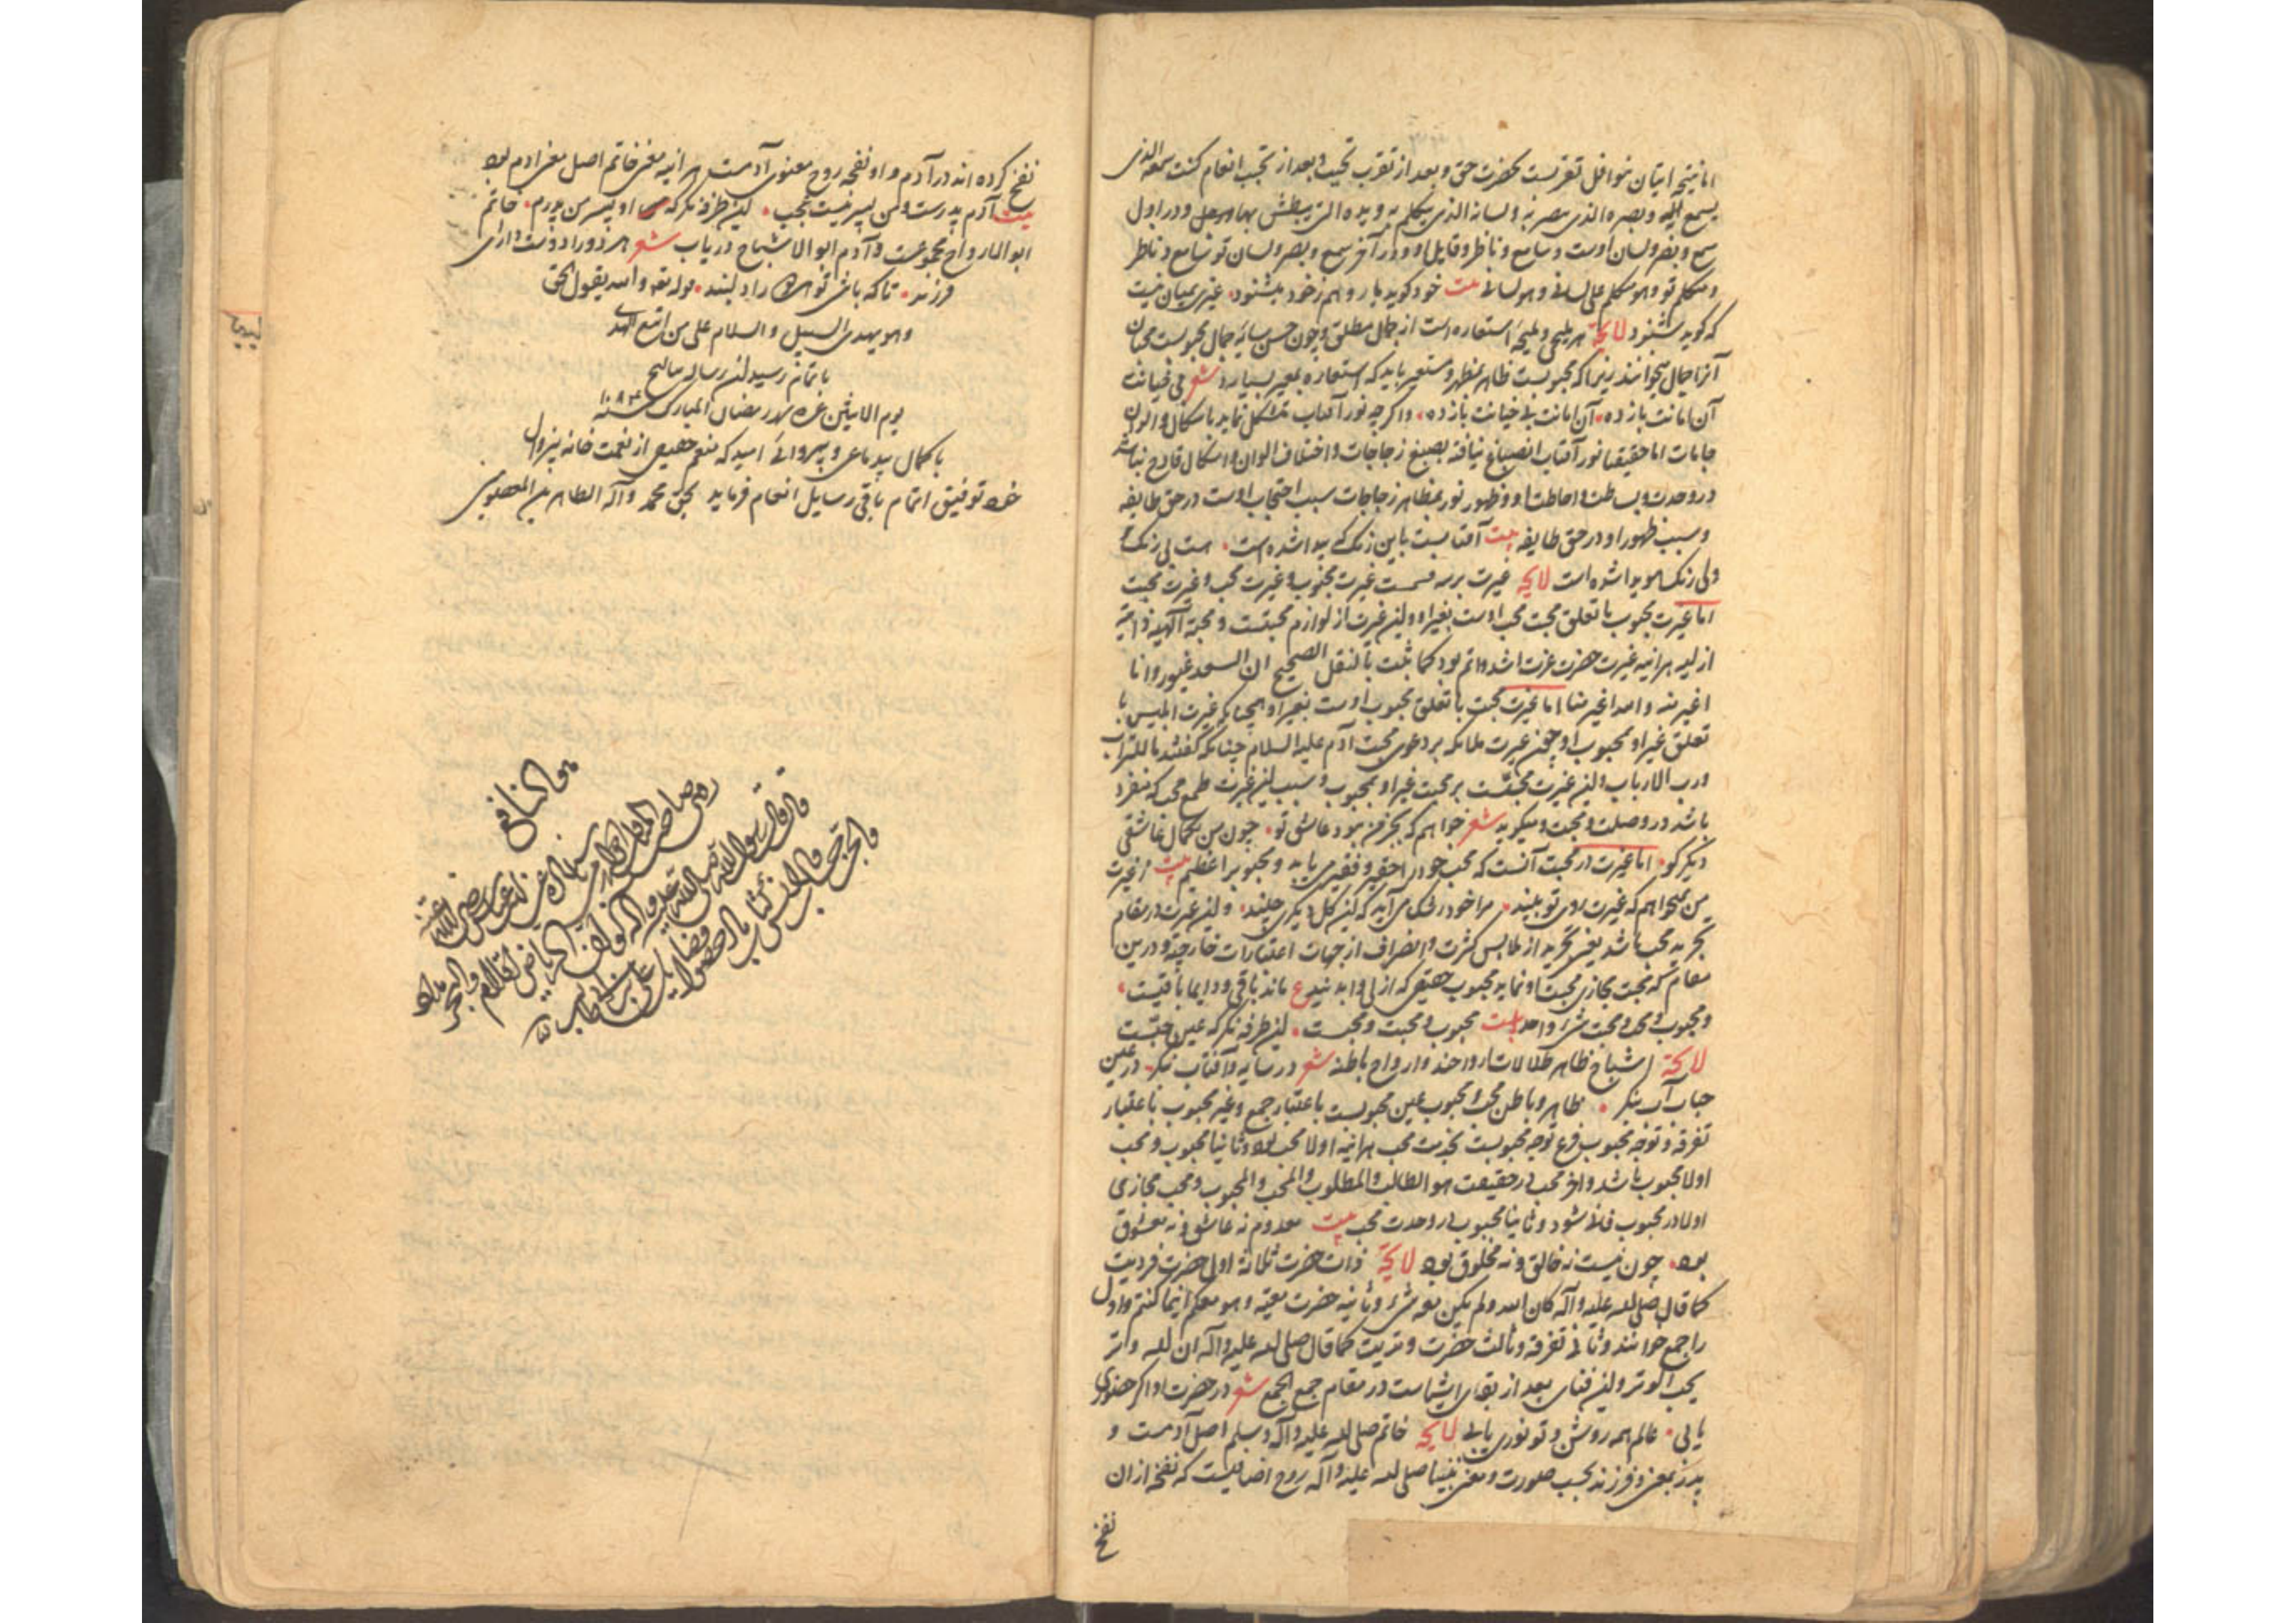 اما نتیجه اتیان بنوافل تقربست بحضرت حق و بعد از تقرب تحبب و بعد از تحبب انعام کنت سمعه الذی
یسمع به و بصره الذی یبصر به و لسانه الذی یتکلم به و یده التی یبطش بها و در اول
سمع و بصر و لسان اوست و سامع و ناظر و قایل او و در آخر سمع و بصر و لسان تو سامع و ناظر
و متکلم تو و هو متکلم علی لسانی و هو لسانی بیت خود گوید باز و هم ز خود میشنود غیری بمیان نیست
که گوید شنود لایحه هر ملیحی و ملیحه استعاره است از جمال مطلق و چون حسن سایه جمال محبوبست محبان
آنرا جمال میخوانند زیرا که محبوبست ظاهر بمظهر و مستعیر باید که استعاره بمعیر بسپارد شعر بی خیانت
آن امانت باز ده آن امانت بی خیانت باز ده و اگر چه نور آفتاب متشکل نماید باشکال و الوان
جامات اما حقیقتا نور آفتاب انصباغ نیافته بصبغ زجاجات و اختلاف الوان و اشکال قادح نباشد
در وحدت و بساطت و احاطت او و ظهور نور بمظاهر زجاجات سبب احتجاب اوست در حق طایفه
و سبب ظهور او در حق طایفه بیت آفتابیست باین رنک که پیدا شده است هست بی رنک و
ولی رنک هویدا شده است لایحه غیرت بر سه قسمست غیرت محبوب و غیرت محب و غیرت محبت
اما غیرت محبوب با تعلق محبت محب اوست بغیر او و این غیرت از لوازم محبتست و محبة الهیه ذاتیة
ازلیه هرآینه غیرت حضرت عزت اشد و اتم بود کما ثبت بالنقل الصحیح ان السعد غیور و انا
اغیر منه و الله اغیر منا اما غیرت محب با تعلق محبوب اوست بغیر او همچنانکه غیرت ابلیس با
تعلق غیر او بمحبوب او و چون غیرت ملائکه بر دعوی محبت آدم علیه السلام چنانکه گفتند ما للتراب
و رب الارباب و این غیرت محبتست بر محبت غیر او بمحبوب و سبب این غیرت طمع محب که منفرد
باشد در وصلت و محبت و میگوید شعر خواهم که بجز من نبود عاشق تو چون من بکمال عاشقی
دیگر کو اما غیرت در محبت آنست که محب خود را حقیر و فقیر می یابد و محبوب را عظیم بیت از غیرت
من نمیخواهم که غیرت روی تو بیند مرا خود رشک می آید که این گل دیگری چیند و این غیرت در مقام
تجرید محب باشد یعنی تجرید از ملابس کثرت و انصراف از جهات اعتبارات خارجة و درین
مقام که محبت مجازی محبت او نماید محبوب حقیقی که ازلی و ابدیند ع ماند باقی و دایما باقیست
و محبوب و محب و محبت شیء واحد بیت محبوب و محبت و محبست این طرفه نگر که عین حبست
لایحة اشباح ظاهر ظلالات ارواحند و ارواح باطنه شعر در سایه و آفتاب بنگر در عین
حباب آب بنگر ظاهر و باطن محب و محبوب عین محبوبست باعتبار جمع و غیر محبوب باعتبار
تفرقه و توجه محبوب فرع توجه محبوبست بجذبت محب هرآینه اولا محب بود و ثانیا محبوب و محب
اولا محبوب باشد و آخر محب در حقیقت هو الطالب و المطلوب و المحب و المحبوب و محب مجازی
اولا در محبوب فانی شود و ثانیا محبوب در وحدت محب بیت معدوم نه عاشق و نه معشوق
بود چون نیست نه خالق و نه مخلوق بود لایحة ذات حضرت ثلاثة اولی حضرت فردیت
کما قال صلی الله علیه و آله کان الله و لم یکن معه شیء و ثانیه حضرت معیة و هو معکم اینما کنتم و اول
را جمع خوانند و ثانی تفرقه و ثالث حضرت وتریت کما قال صلی الله علیه و آله ان الله وتر
یحب الوتر و این فنای بعد از بقای ایشانست در مقام جمع الجمع شعر در حضرت او اگر حضوری
یابی عالم همه روشن و تو نوری یابی لایحه خاتم صلی الله علیه و آله و سلم اصل آدمست و
پدر بمعنی و فرزند بحسب صورت و معنی نبینا صلی الله علیه و آله روح اضافیست که نفخه از ان
نفخ
نفخ کرده اند در آدم و او نفخه روح معنوی آدمست هر آینه معنی خاتم اصل معنی آدم بود
بیت آدم پدرست و من پسر نیست عجب این طرفه نگر که او پسر من پدرم خاتم
ابو الارواح مجموعست و آدم ابو الاشباح دریاب شعر هر دو را دوست دار ای
فرزند تا که باشی تو هر دو را دلبند قوله تعالی و الله یقول الحق
و هو یهدی السبیل و السلام علی من اتبع الهدی
باتمام رسید این رساله
یوم الاثنین غره شهر رمضان المبارک سنه
با کمال بیدماغی و پریشانی امید که منعم حقیقی از نعمت خانه بیزوال
خود توفیق اتمام باقی رسایل انعام فرماید بحق محمد و آله الطاهرین المعصومین
هو النافع
روی صاحب المناقب
عن ابن عباس رضی الله عنه
قال قال رسول الله صلی الله علیه و آله لو ان الریاض اقلام و البحر مداد
و الجن حساب و الانس کتاب ما احصوا فضایل علی بن ابی طالب